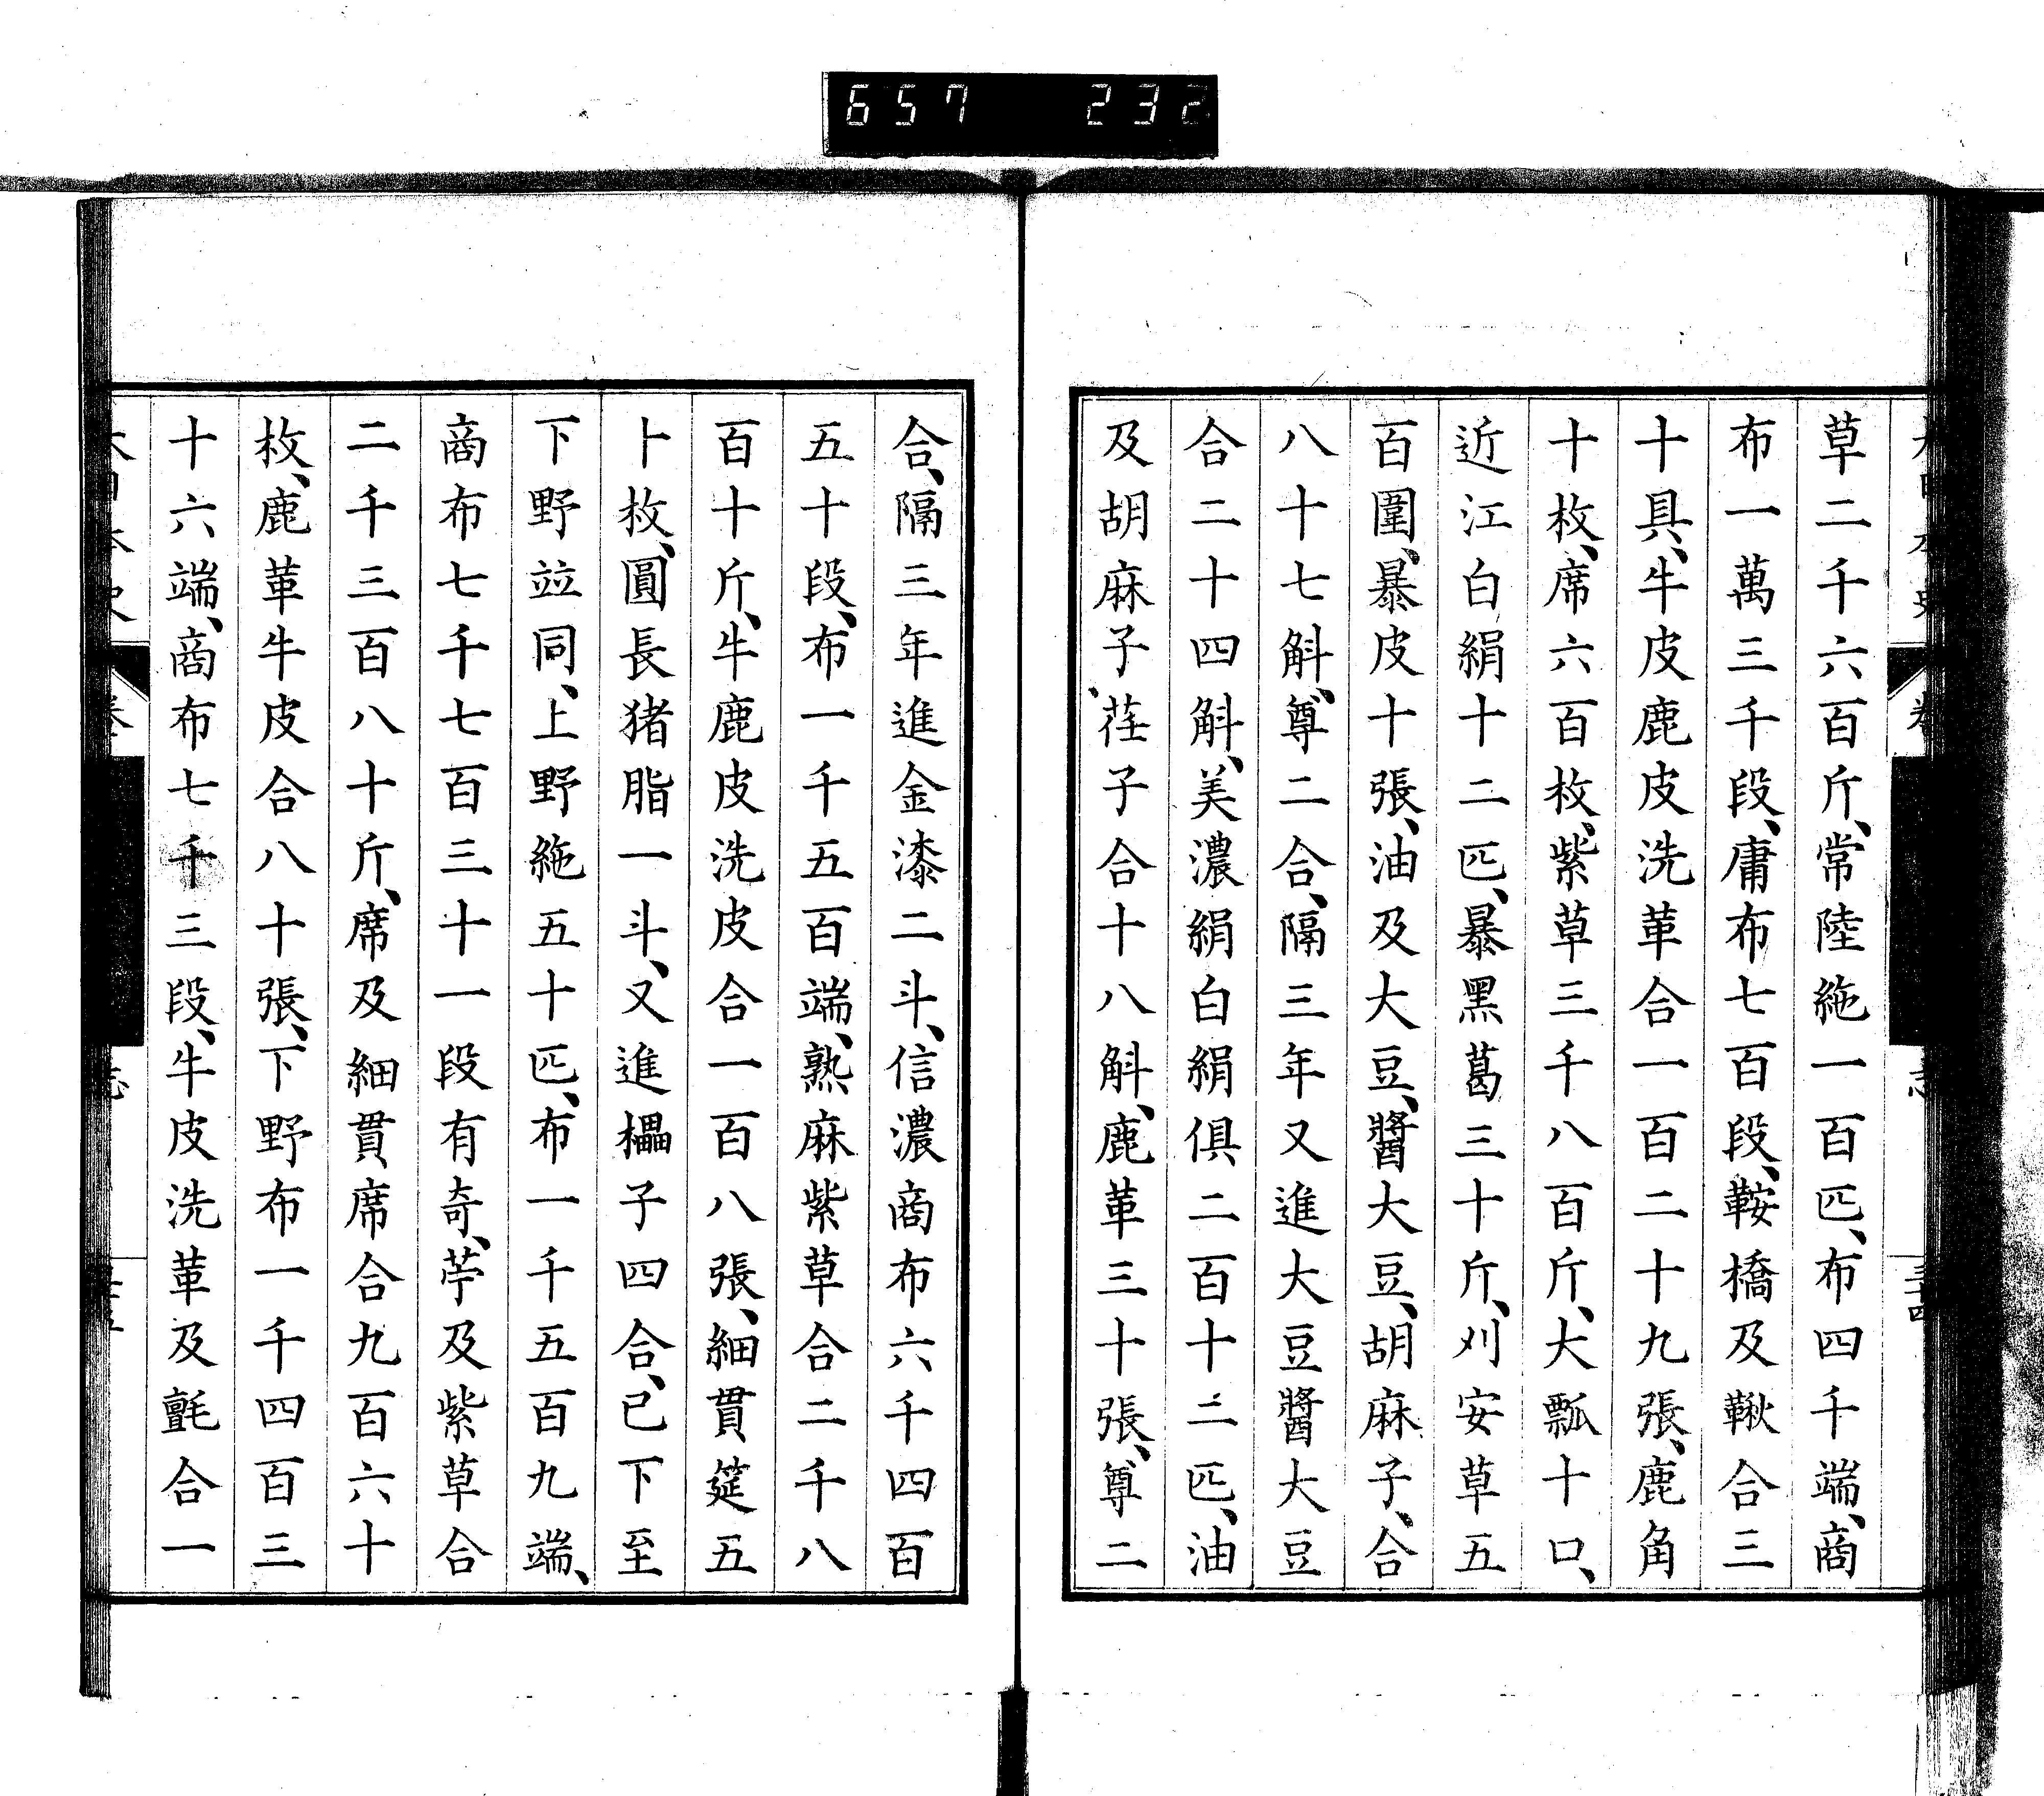 657 232
草二千六百斤、常陸絁一百匹、布四千端、商
布一萬三千段、庸布七百段、鞍橋及鞦合三
十具、牛皮鹿皮洗革合一百二十九張、鹿角
十枚、席六百枚、紫草三千八百斤、大瓢十口、
近江白絹十二匹、暴黑葛三十斤、刈安草五
百圍、暴皮十張、油及大豆、醬大豆、胡麻子、合
八十七斛、尊二合、隔三年又進大豆醬大豆
合二十四斛、美濃絹白絹俱二百十二匹、油
及胡麻子、荏子合十八斛、鹿革三十張、尊二
合、隔三年進金漆二斗、信濃商布六千四百
五十段、布一千五百端、熟麻紫草合二千八
百十斤、牛鹿皮洗皮合一百八張、細貫筵五
十枚、圓長猪脂一斗、又進櫑子四合、已下至
下野竝同、上野絁五十匹、布一千五百九端、
商布七千七百三十一段有奇、苧及紫草合
二千三百八十斤、席及細貫席合九百六十
枚、鹿革牛皮合八十張、下野布一千四百三
十六端、商布七千三段、牛皮洗革及氈合一